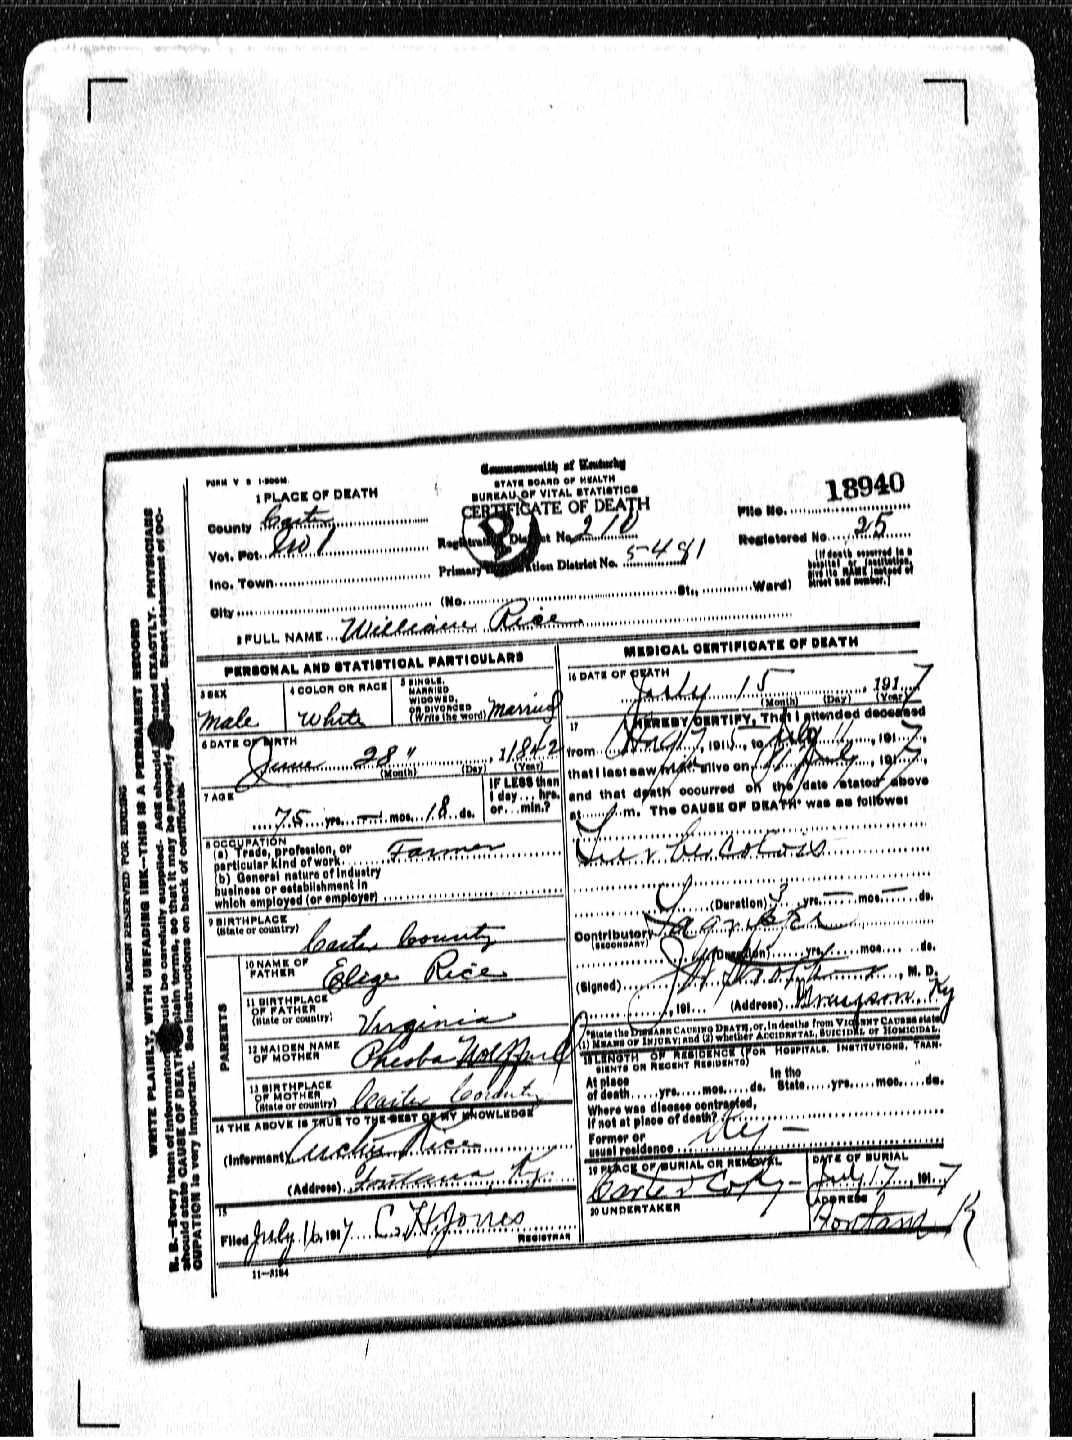 FORM V S 1-500M.
Commonwealth of Kentucky
STATE BOARD OF HEALTH
BUREAU OF VITAL STATISTICS
CERTIFICATE OF DEATH
1 PLACE OF DEATH
County Carter
Vot. Pct. No 1
Inc. Town
City
(No. St., Ward)
Registration District No. 210
Primary Registration District No. 5481
File No. 18940
Registered No. 25
(If death occurred in a
hospital or institution,
give its NAME instead of
street and number.)
2 FULL NAME William Rice
PERSONAL AND STATISTICAL PARTICULARS
3 SEX
Male
4 COLOR OR RACE
White
5 SINGLE,
MARRIED
WIDOWED,
OR DIVORCED
(Write the word) Married
6 DATE OF BIRTH
June 28", 1842
(Month) (Day) (Year)
7 AGE
75 yrs. — mos. 18 ds.
IF LESS than
1 day... hrs.
or... min.?
8 OCCUPATION
(a) Trade, profession, or
particular kind of work Farmer
(b) General nature of industry
business or establishment in
which employed (or employer)
9 BIRTHPLACE
(State or country)
Carter County
PARENTS
10 NAME OF
FATHER
Elege Rice
11 BIRTHPLACE
OF FATHER
(State or country)
Virginia
12 MAIDEN NAME
OF MOTHER
Pheoba
13 BIRTHPLACE
OF MOTHER
(State or country) Carter County
14 THE ABOVE IS TRUE TO THE BEST OF MY KNOWLEDGE
(Informant) Rice
(Address) Fontana, Ky.
15
Filed July 16, 1917 C. H. Jones
REGISTRAR
11—3184
MEDICAL CERTIFICATE OF DEATH
16 DATE OF DEATH
July 15, 1917
(Month) (Day) (Year)
17 I HEREBY CERTIFY, That I attended deceased
from , 191 , to , 1917,
that I last saw him alive on July, 1917,
and that death occurred on the date stated above
at m. The CAUSE OF DEATH* was as follows:
Tuberculosis
(Duration) 3 yrs. — mos. — ds.
Contributory
(SECONDARY)
(Duration) yrs. mos. ds.
(Signed) , M. D.
, 191 (Address) Grayson, Ky
*State the DISEASE CAUSING DEATH, or, in deaths from VIOLENT CAUSES state
(1) MEANS OF INJURY; and (2) whether ACCIDENTAL, SUICIDAL or HOMICIDAL.
18 LENGTH OF RESIDENCE (FOR HOSPITALS, INSTITUTIONS, TRAN-
SIENTS OR RECENT RESIDENTS)
At place
of death yrs. mos. ds.
In the
State yrs. mos. ds.
Where was disease contracted,
if not at place of death?
Former or
usual residence Ky —
19 PLACE OF BURIAL OR REMOVAL
Carter Co Ky —
DATE OF BURIAL
July 17, 1917
20 UNDERTAKER
ADDRESS
MARGIN RESERVED FOR BINDING
WRITE PLAINLY, WITH UNFADING INK—THIS IS A PERMANENT RECORD
N. B.—Every item of information should be carefully supplied. AGE should be stated EXACTLY. PHYSICIANS
should state CAUSE OF DEATH in plain terms, so that it may be properly classified. Exact statement of OC-
CUPATION is very important. See instructions on back of certificate.